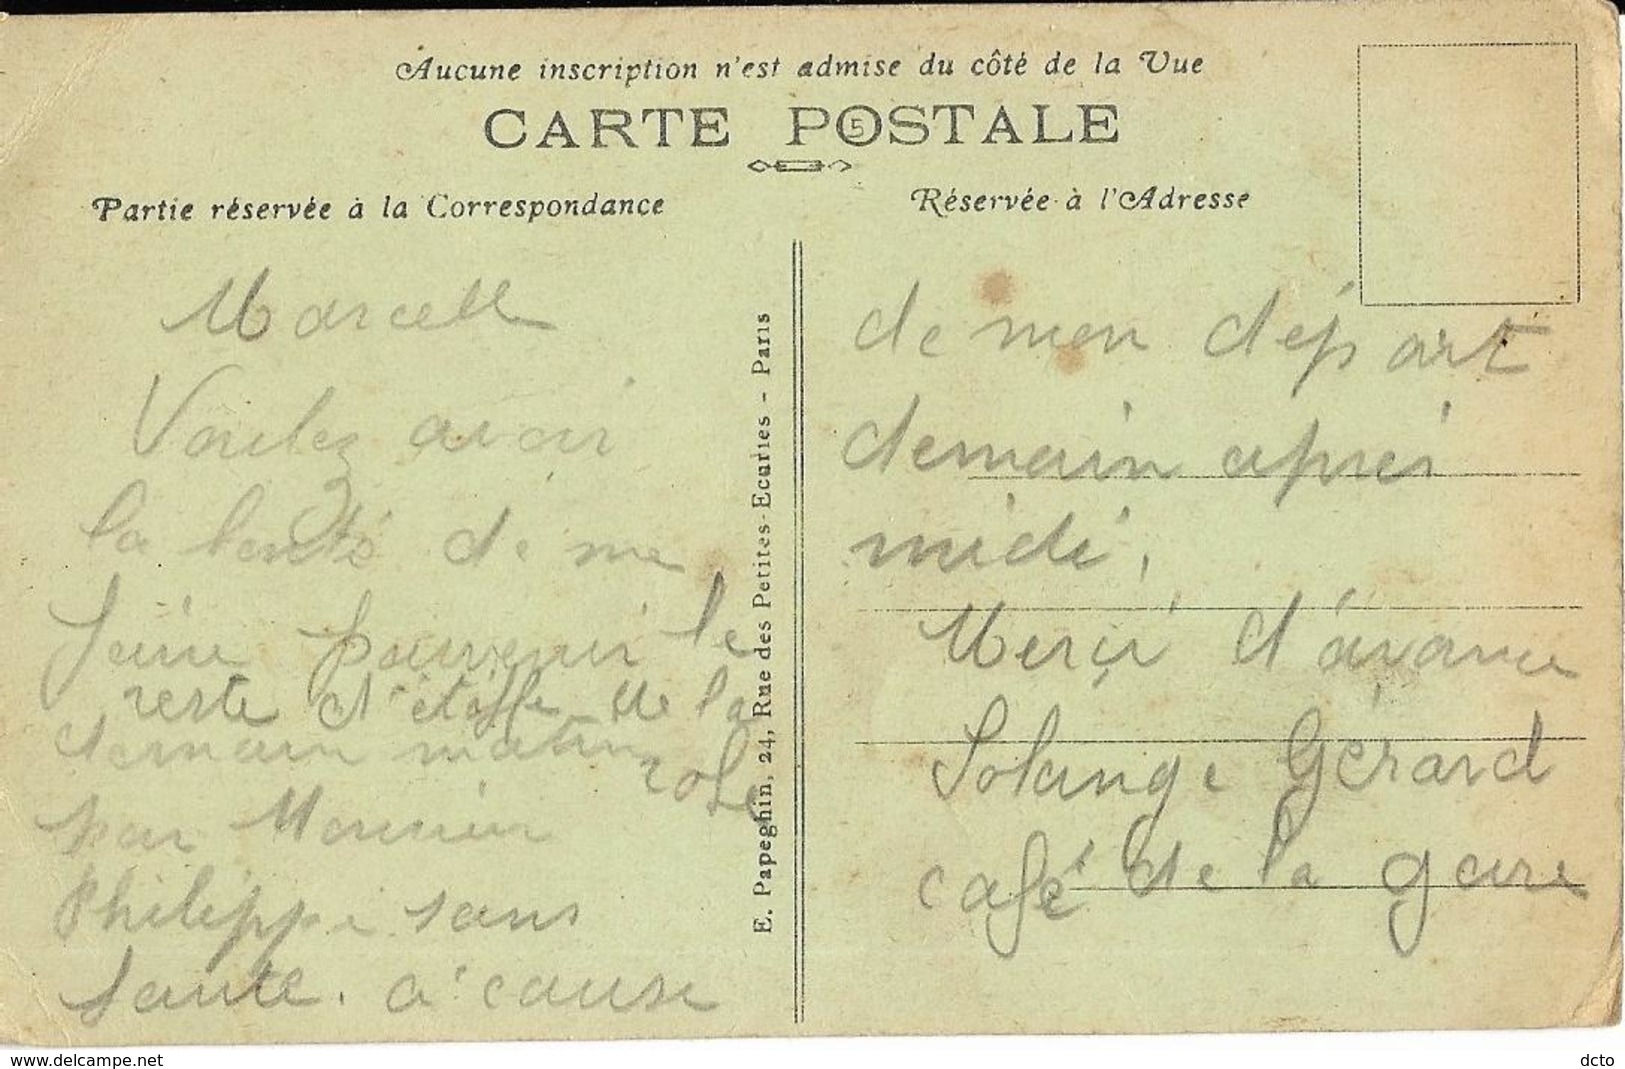 Aucune inscription n'est admise du côté de la Vue
CARTE POSTALE
5
Partie réservée à la Correspondance
Réservée à l'Adresse
Marcelle
Voulez avoir
la bonté de me
faire parvenir le
reste d'étoffe de la
robe
demain matin
par Monsieur
Philippe sans
faute. a cause
E. Papeghin, 24, Rue des Petites-Ecuries - Paris
de mon départ
demain après
midi,
Merçi d'avance
Solange Gérard
café de la gare
www.delcampe.net
dcto